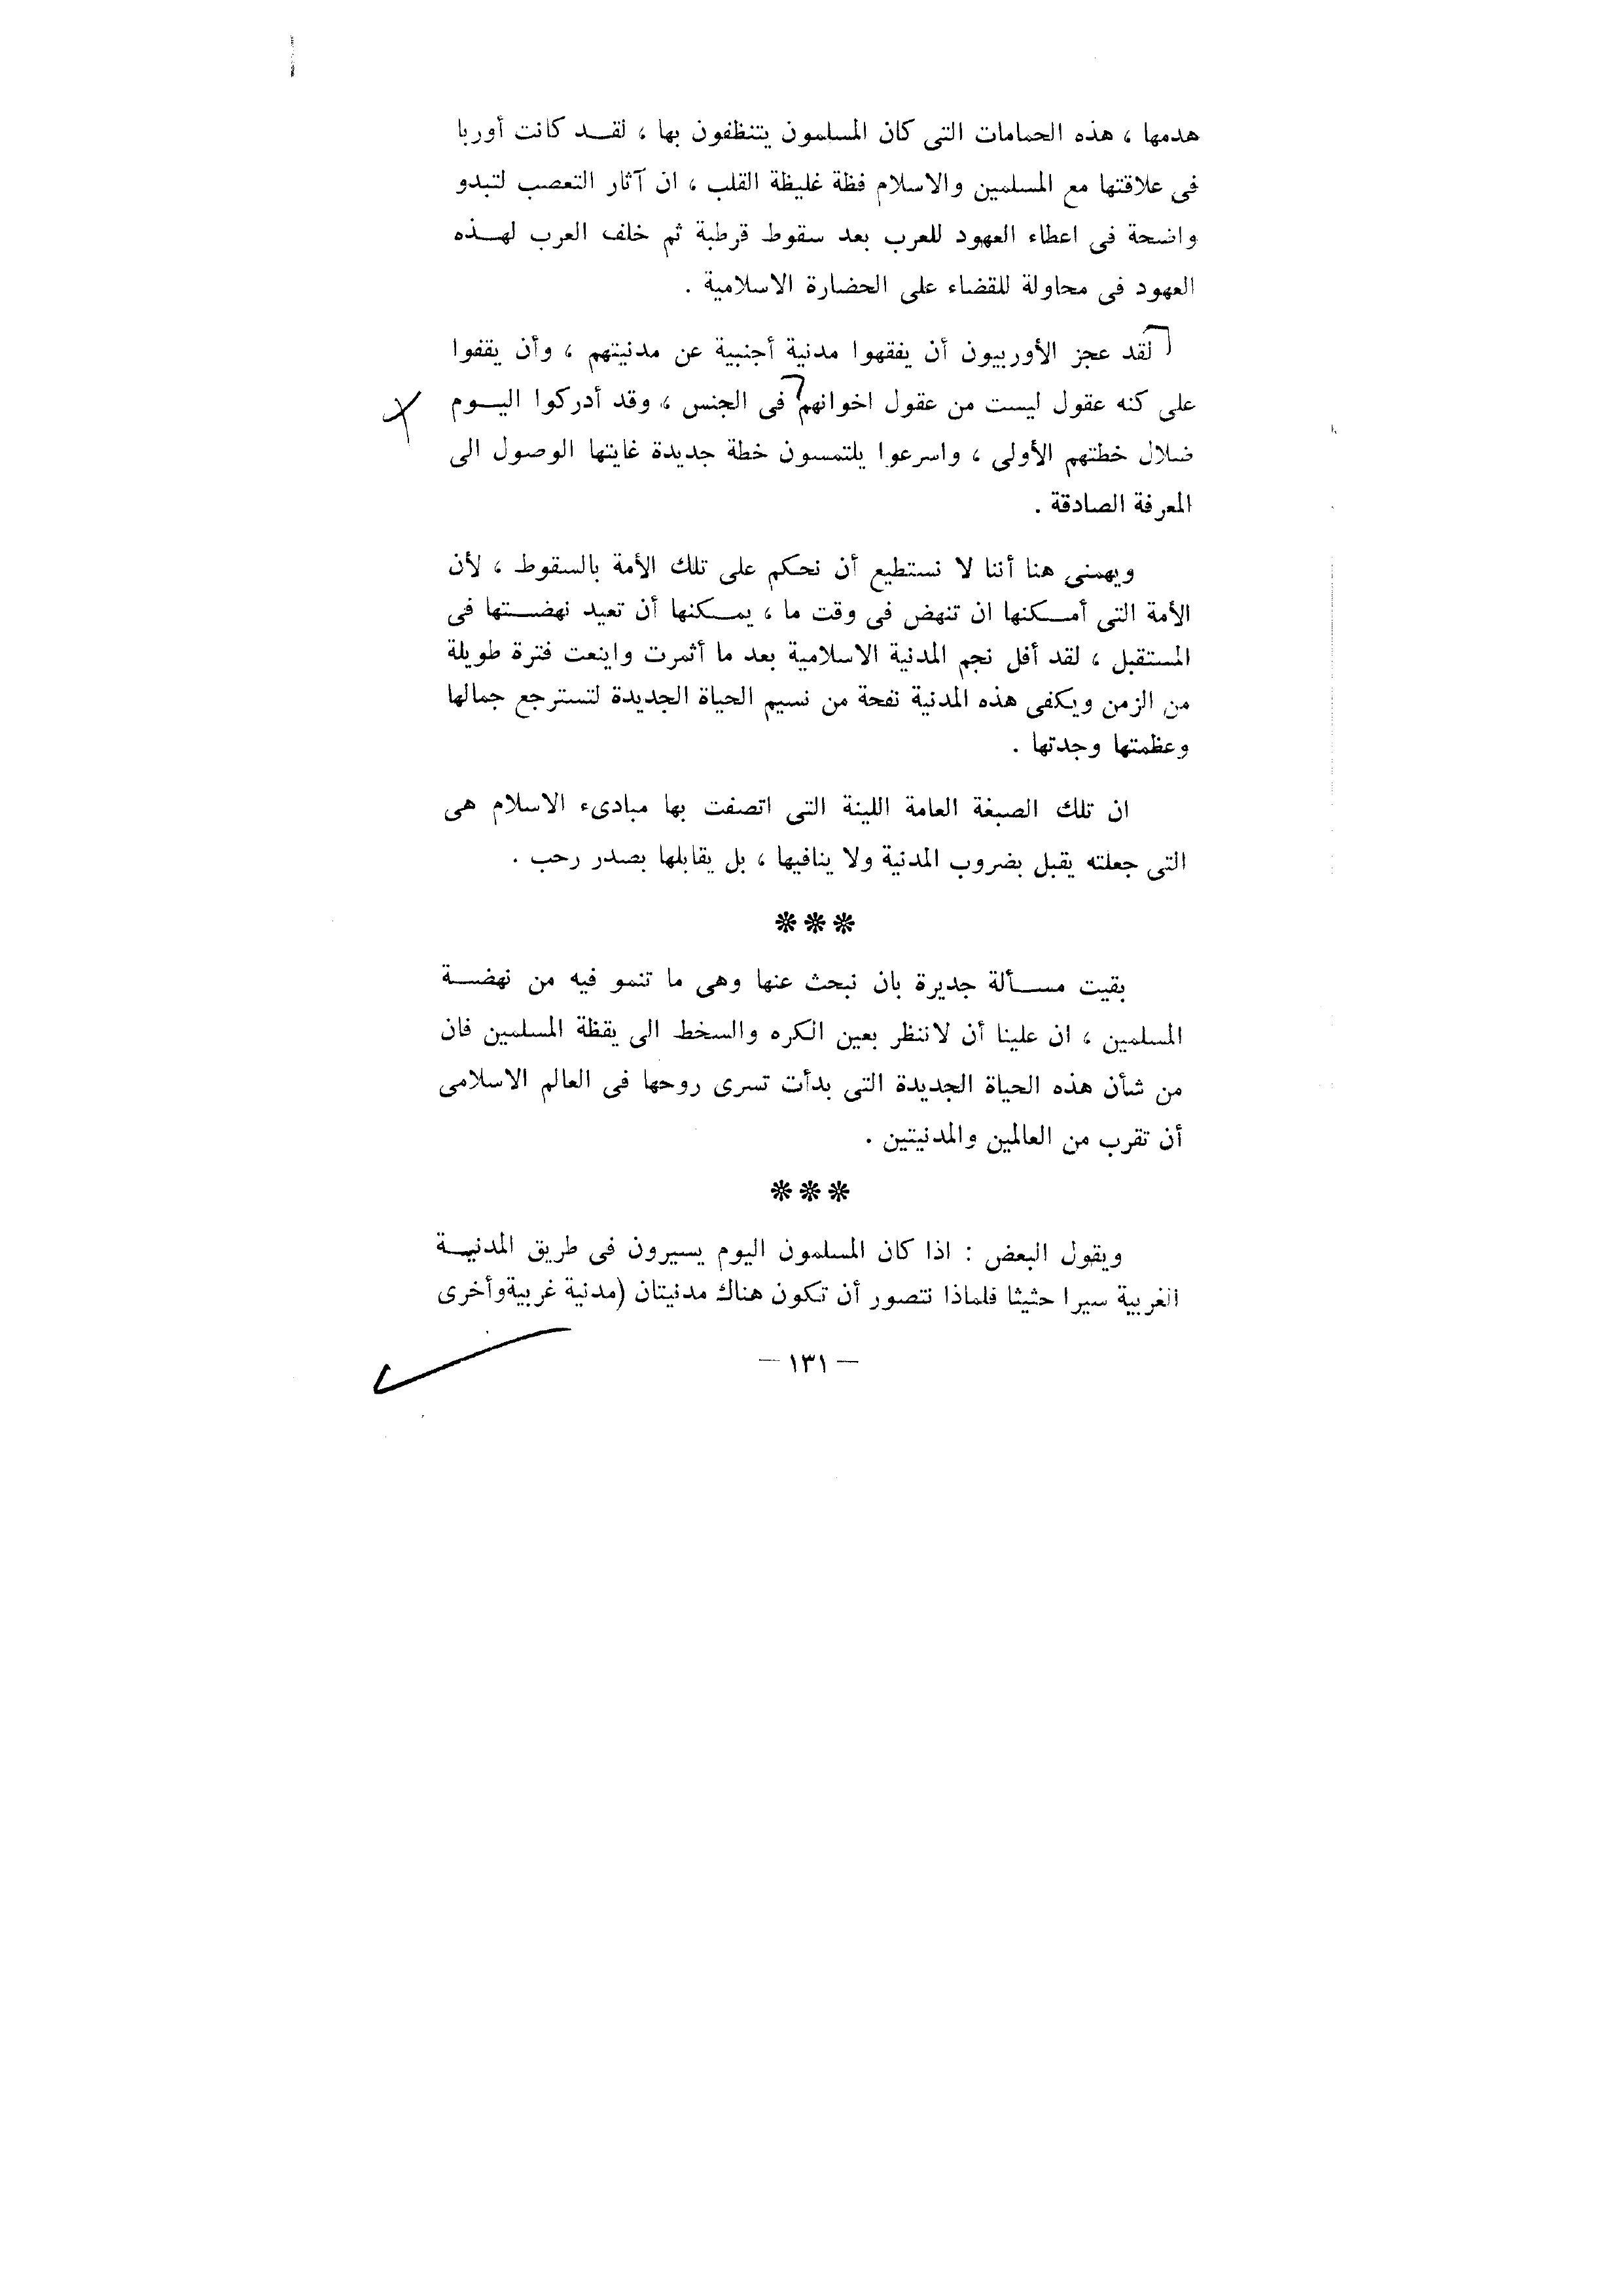 هدمها ، هذه الحمامات التى كان المسلمون يتنظفون بها ، لقد كانت أوربا
فى علاقتها مع المسلمين والاسلام فظة غليظة القلب ، ان آثار التعصب لتبدو
واضحة فى اعطاء العهود للعرب بعد سقوط قرطبة ثم خلف العرب لهذه
العهود فى محاولة للقضاء على الحضارة الاسلامية .
لقد عجز الأوربيون أن يفقهوا مدنية أجنبية عن مدنيتهم ، وأن يقفوا
على كنه عقول ليست من عقول اخوانهم فى الجنس ، وقد أدركوا اليوم
ضلال خطتهم الأولى ، واسرعوا يلتمسون خطة جديدة غايتها الوصول الى
المعرفة الصادقة .
ويهمنى هنا أننا لا نستطيع أن نحكم على تلك الأمة بالسقوط ، لأن
الأمة التى أمكنها ان تنهض فى وقت ما ، يمكنها أن تعيد نهضتها فى
المستقبل ، لقد أفل نجم المدنية الاسلامية بعد ما أثمرت واينعت فترة طويلة
من الزمن ويكفى هذه المدنية نفحة من نسيم الحياة الجديدة لتسترجع جمالها
وعظمتها وجدتها .
ان تلك الصبغة العامة اللينة التى اتصفت بها مبادىء الاسلام هى
التى جعلته يقبل بضروب المدنية ولا ينافيها ، بل يقابلها بصدر رحب .
***
بقيت مسألة جديرة بان نبحث عنها وهى ما تنمو فيه من نهضة
المسلمين ، ان علينا أن لاننظر بعين الكره والسخط الى يقظة المسلمين فان
من شأن هذه الحياة الجديدة التى بدأت تسرى روحها فى العالم الاسلامى
أن تقرب من العالمين والمدنيتين .
***
ويقول البعض : اذا كان المسلمون اليوم يسيرون فى طريق المدنية
الغربية سيرا حثيثا فلماذا نتصور أن تكون هناك مدنيتان (مدنية غربية وأخرى
— ١٣١ —